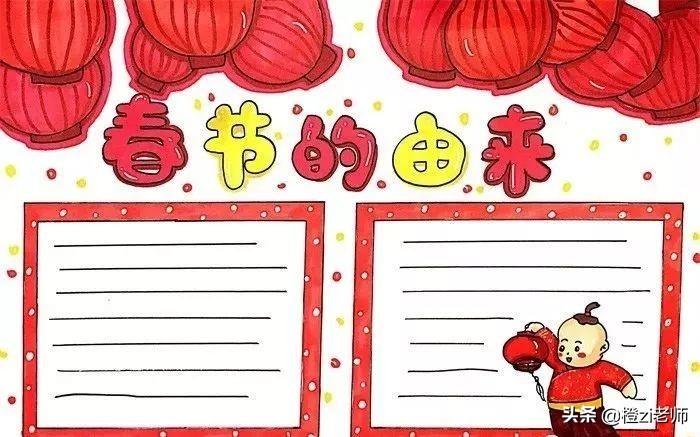 春节的由来
头条 @橙zi老师